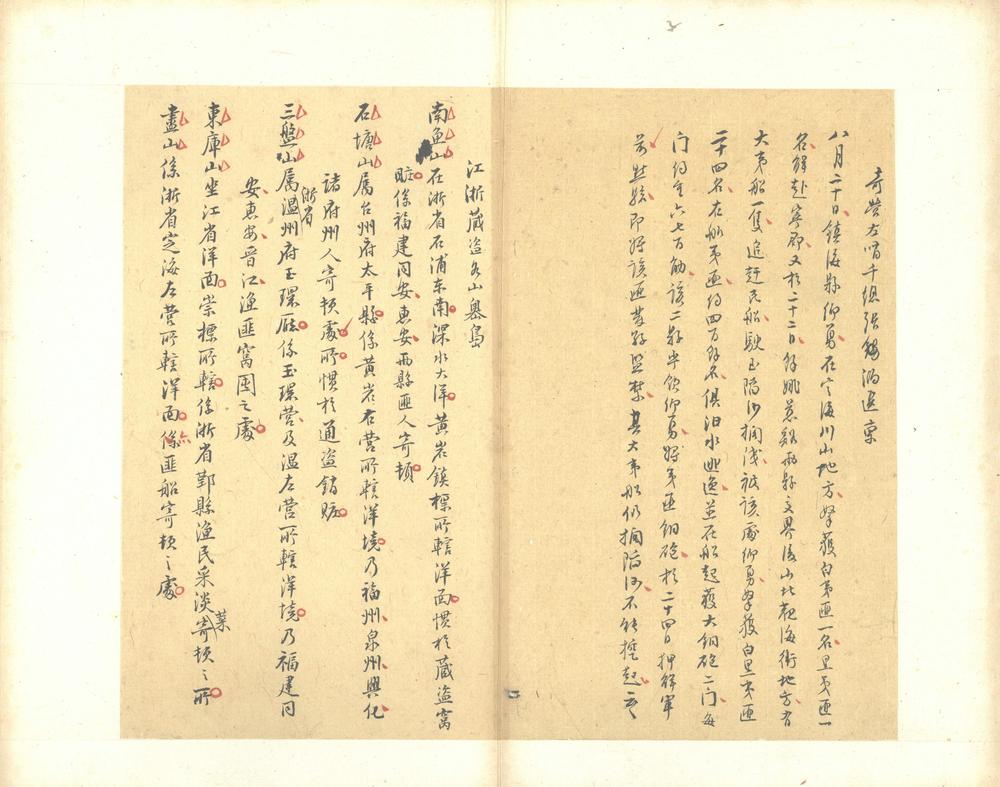 八月二十日鎮海縣鄉勇在定海川山地方拏獲白夷匪一名黑夷匪一
名解赴寧郡又於二十二日餘姚慈谿兩縣交界後山北觀海衛地方有
大夷船一隻追赶民船駛至陷沙擱淺被該處鄉勇拏獲白黑夷匪
二十四名在船夷匪約四百餘名俱泅水逃逸並在船起獲大銅砲二门每
门约重六七百觔該二縣鄉勇將夷匪銅砲於二十四日押解軍
即將該匪監禁其大夷船仍擱陷沙不能
江浙藏盜各山嶴島
南魚山在浙省石浦东南深水大洋黃岩鎮標所轄洋面慣於藏盜窩
賍係福建同安惠安兩縣匪人寄頓
石塘山属台州府太平縣係黃岩右營所轄洋境乃福州泉州興化
諸府州人寄頓處所慣於通盜銷賍
三盤山属浙省溫州府玉環廳係玉環营及温左营所轄洋境乃福建同
安惠安晋江漁匪窩囤之處
東庫山坐江省洋面崇標所轄係浙省鄞縣漁民采淡菜寄頓之所
盡山係浙省定海左营所轄洋面係匪船寄頓之處